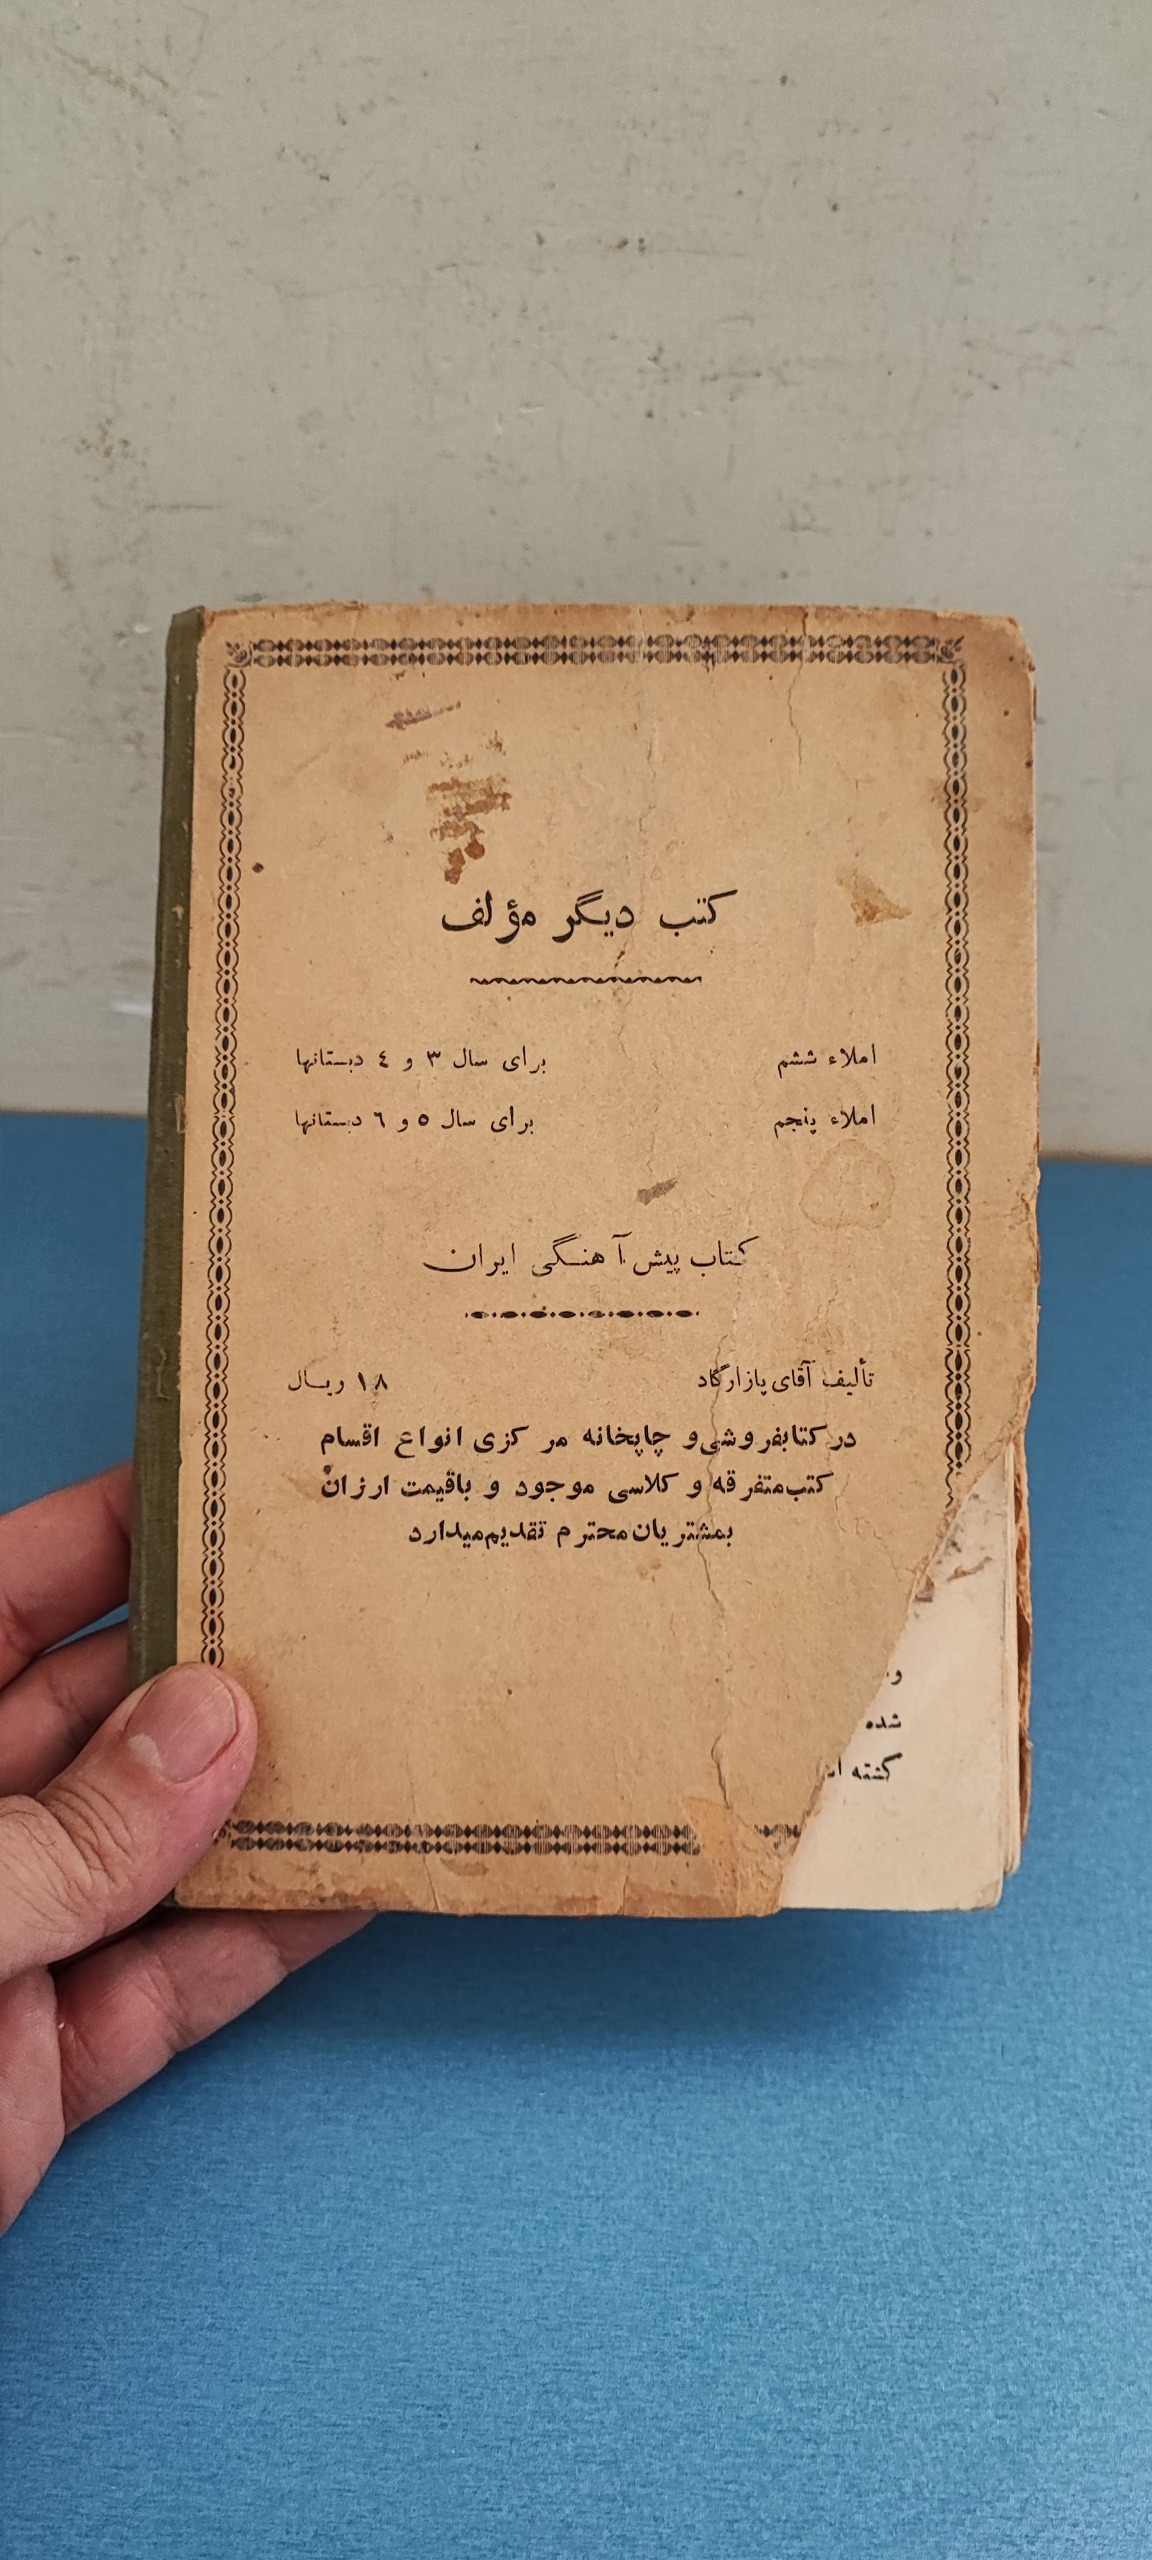 کتب دیگر مؤلف
املاء ششم برای سال ۳ و ٤ دبستانها
املاء پنجم برای سال ٥ و ٦ دبستانها
کتاب پیش آهنگی ایران
تألیف آقای پازارگاد ۱۸ ریال
در کتابفروشی و چاپخانه مرکزی انواع اقسام
کتب متفرقه و کلاسی موجود و باقیمت ارزان
بمشتریان محترم تقدیم میدارد
و
شده
کشته